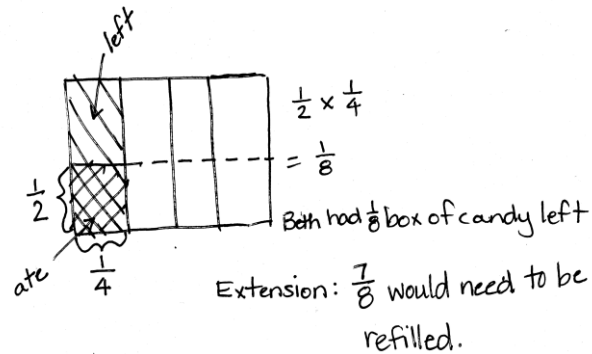 left
1/2 × 1/4
= 1/8
1/2
Beth had 1/8 box of candy left
ate
1/4
Extension: 7/8 would need to be
refilled.